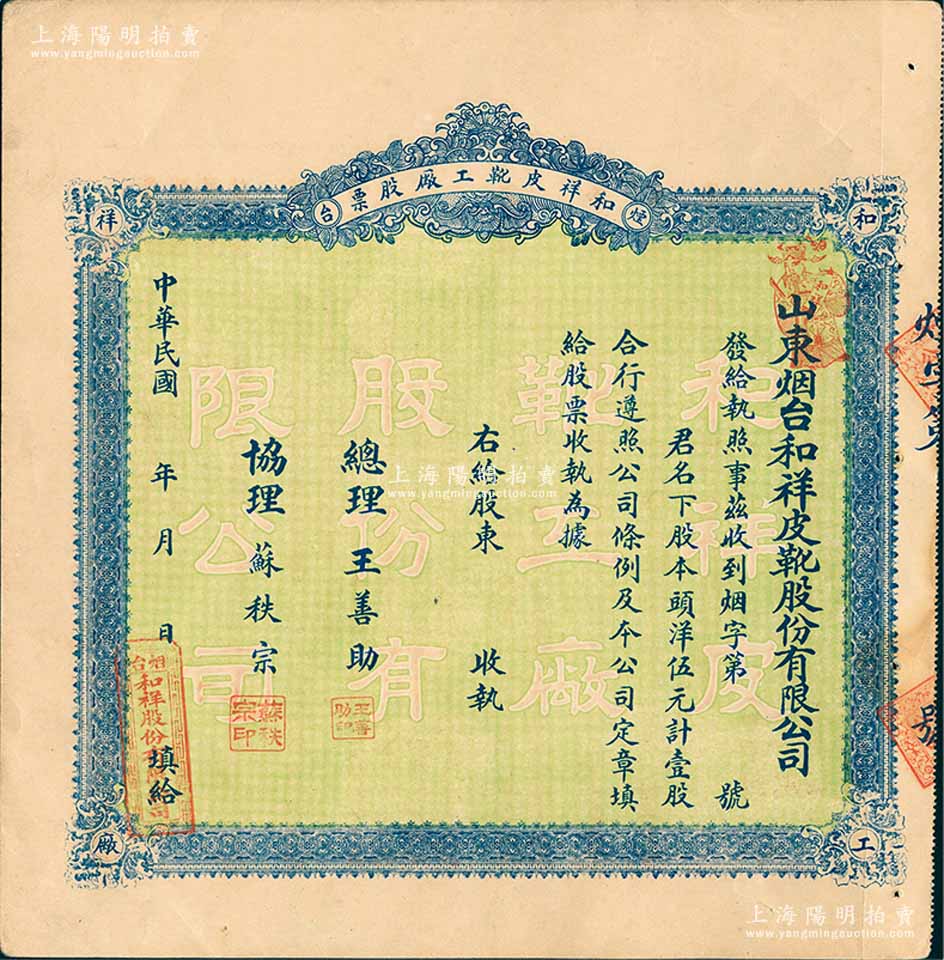 上海陽明拍賣
www.yangmingauction.com
煙台
和祥皮靴工廠股票
和
祥
工
廠
山東烟台和祥皮靴股份有限公司
發給執照事茲收到烟字第 號
君名下股本頭洋伍元計壹股
合行遵照公司條例及本公司定章填
給股票收執為據
右給股東 收執
總理 王善助
王善助印
協理 蘇秩宗
蘇秩宗印
中華民國 年 月 日
填給
烟台和祥股份有限公司
和祥皮
靴工廠
股份有
限公司
煙字第
號
上海陽明拍賣
www.yangmingauction.com
上海陽明拍賣
www.yangmingauction.com